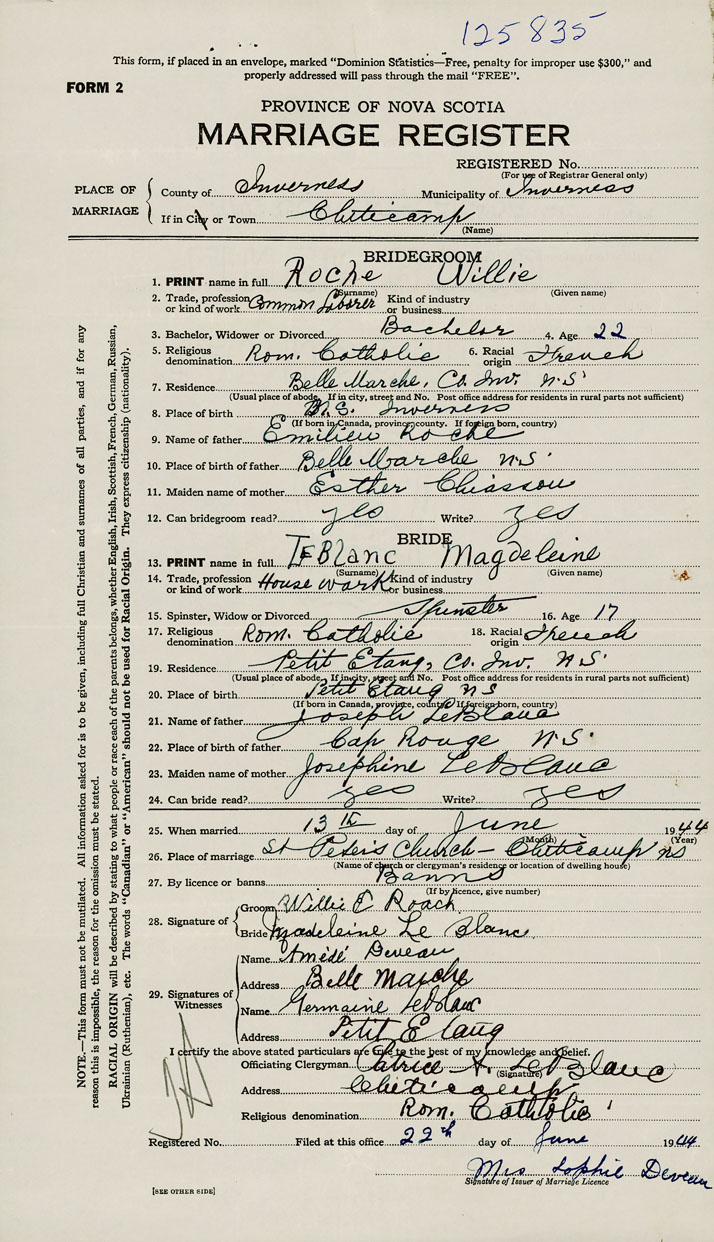 125835
This form, if placed in an envelope, marked "Dominion Statistics—Free, penalty for improper use $300," and
properly addressed will pass through the mail "FREE".
FORM 2
PROVINCE OF NOVA SCOTIA
MARRIAGE REGISTER
REGISTERED No.
(For use of Registrar General only)
PLACE OF MARRIAGE
County of Inverness Municipality of Inverness
If in City or Town Cheticamp
(Name)
BRIDEGROOM
1. PRINT name in full Roche Willie
(Surname) (Given name)
2. Trade, profession or kind of work Common Laborer Kind of industry or business
3. Bachelor, Widower or Divorced Bachelor 4. Age 22
5. Religious denomination Rom. Catholic 6. Racial origin French
7. Residence Belle Marche, Co. Inv. N.S.
(Usual place of abode. If in city, street and No. Post office address for residents in rural parts not sufficient)
8. Place of birth Inverness
(If born in Canada, province, county. If foreign born, country)
9. Name of father Emilien Roche
10. Place of birth of father Belle Marche N.S.
11. Maiden name of mother Esther Chiasson
12. Can bridegroom read? yes Write? yes
BRIDE
13. PRINT name in full LeBlanc Magdeleine
(Surname) (Given name)
14. Trade, profession or kind of work House work Kind of industry or business
15. Spinster, Widow or Divorced Spinster 16. Age 17
17. Religious denomination Rom. Catholic 18. Racial origin French
19. Residence Petit Etang, Co. Inv. N.S.
(Usual place of abode. If in city, street and No. Post office address for residents in rural parts not sufficient)
20. Place of birth Petit Etang NS
(If born in Canada, province, county. If foreign born, country)
21. Name of father Joseph LeBlanc
22. Place of birth of father Cap Rouge N.S.
23. Maiden name of mother Josephine LeBlanc
24. Can bride read? yes Write? yes
25. When married 13th day of June 1944
(Month) (Year)
26. Place of marriage St Peter's Church - Cheticamp NS
(Name of church or clergyman's residence or location of dwelling house)
27. By licence or banns Banns
(If by licence, give number)
28. Signature of
Groom Willie E Roach
Bride Madeleine Le Blanc
29. Signatures of Witnesses
Name Amédé Deveau
Address Belle Marche
Name Germaine LeBlanc
Address Petit Etang
I certify the above stated particulars are true to the best of my knowledge and belief.
Officiating Clergyman Patrice A. LeBlanc
(Signature)
Address Cheticamp
Religious denomination Rom. Catholic
Registered No. Filed at this office 22th day of June 1944
Mrs Sophie Deveau
Signature of Issuer of Marriage Licence
[SEE OTHER SIDE]
NOTE.—This form must not be mutilated. All information asked for is to be given, including full Christian and surnames of all parties, and if for any
reason this is impossible, the reason for the omission must be stated.
RACIAL ORIGIN will be described by stating to what people or race each of the parents belongs, whether English, Irish, Scottish, French, German, Russian,
Ukrainian (Ruthenian), etc. The words "Canadian" or "American" should not be used for Racial Origin. They express citizenship (nationality).